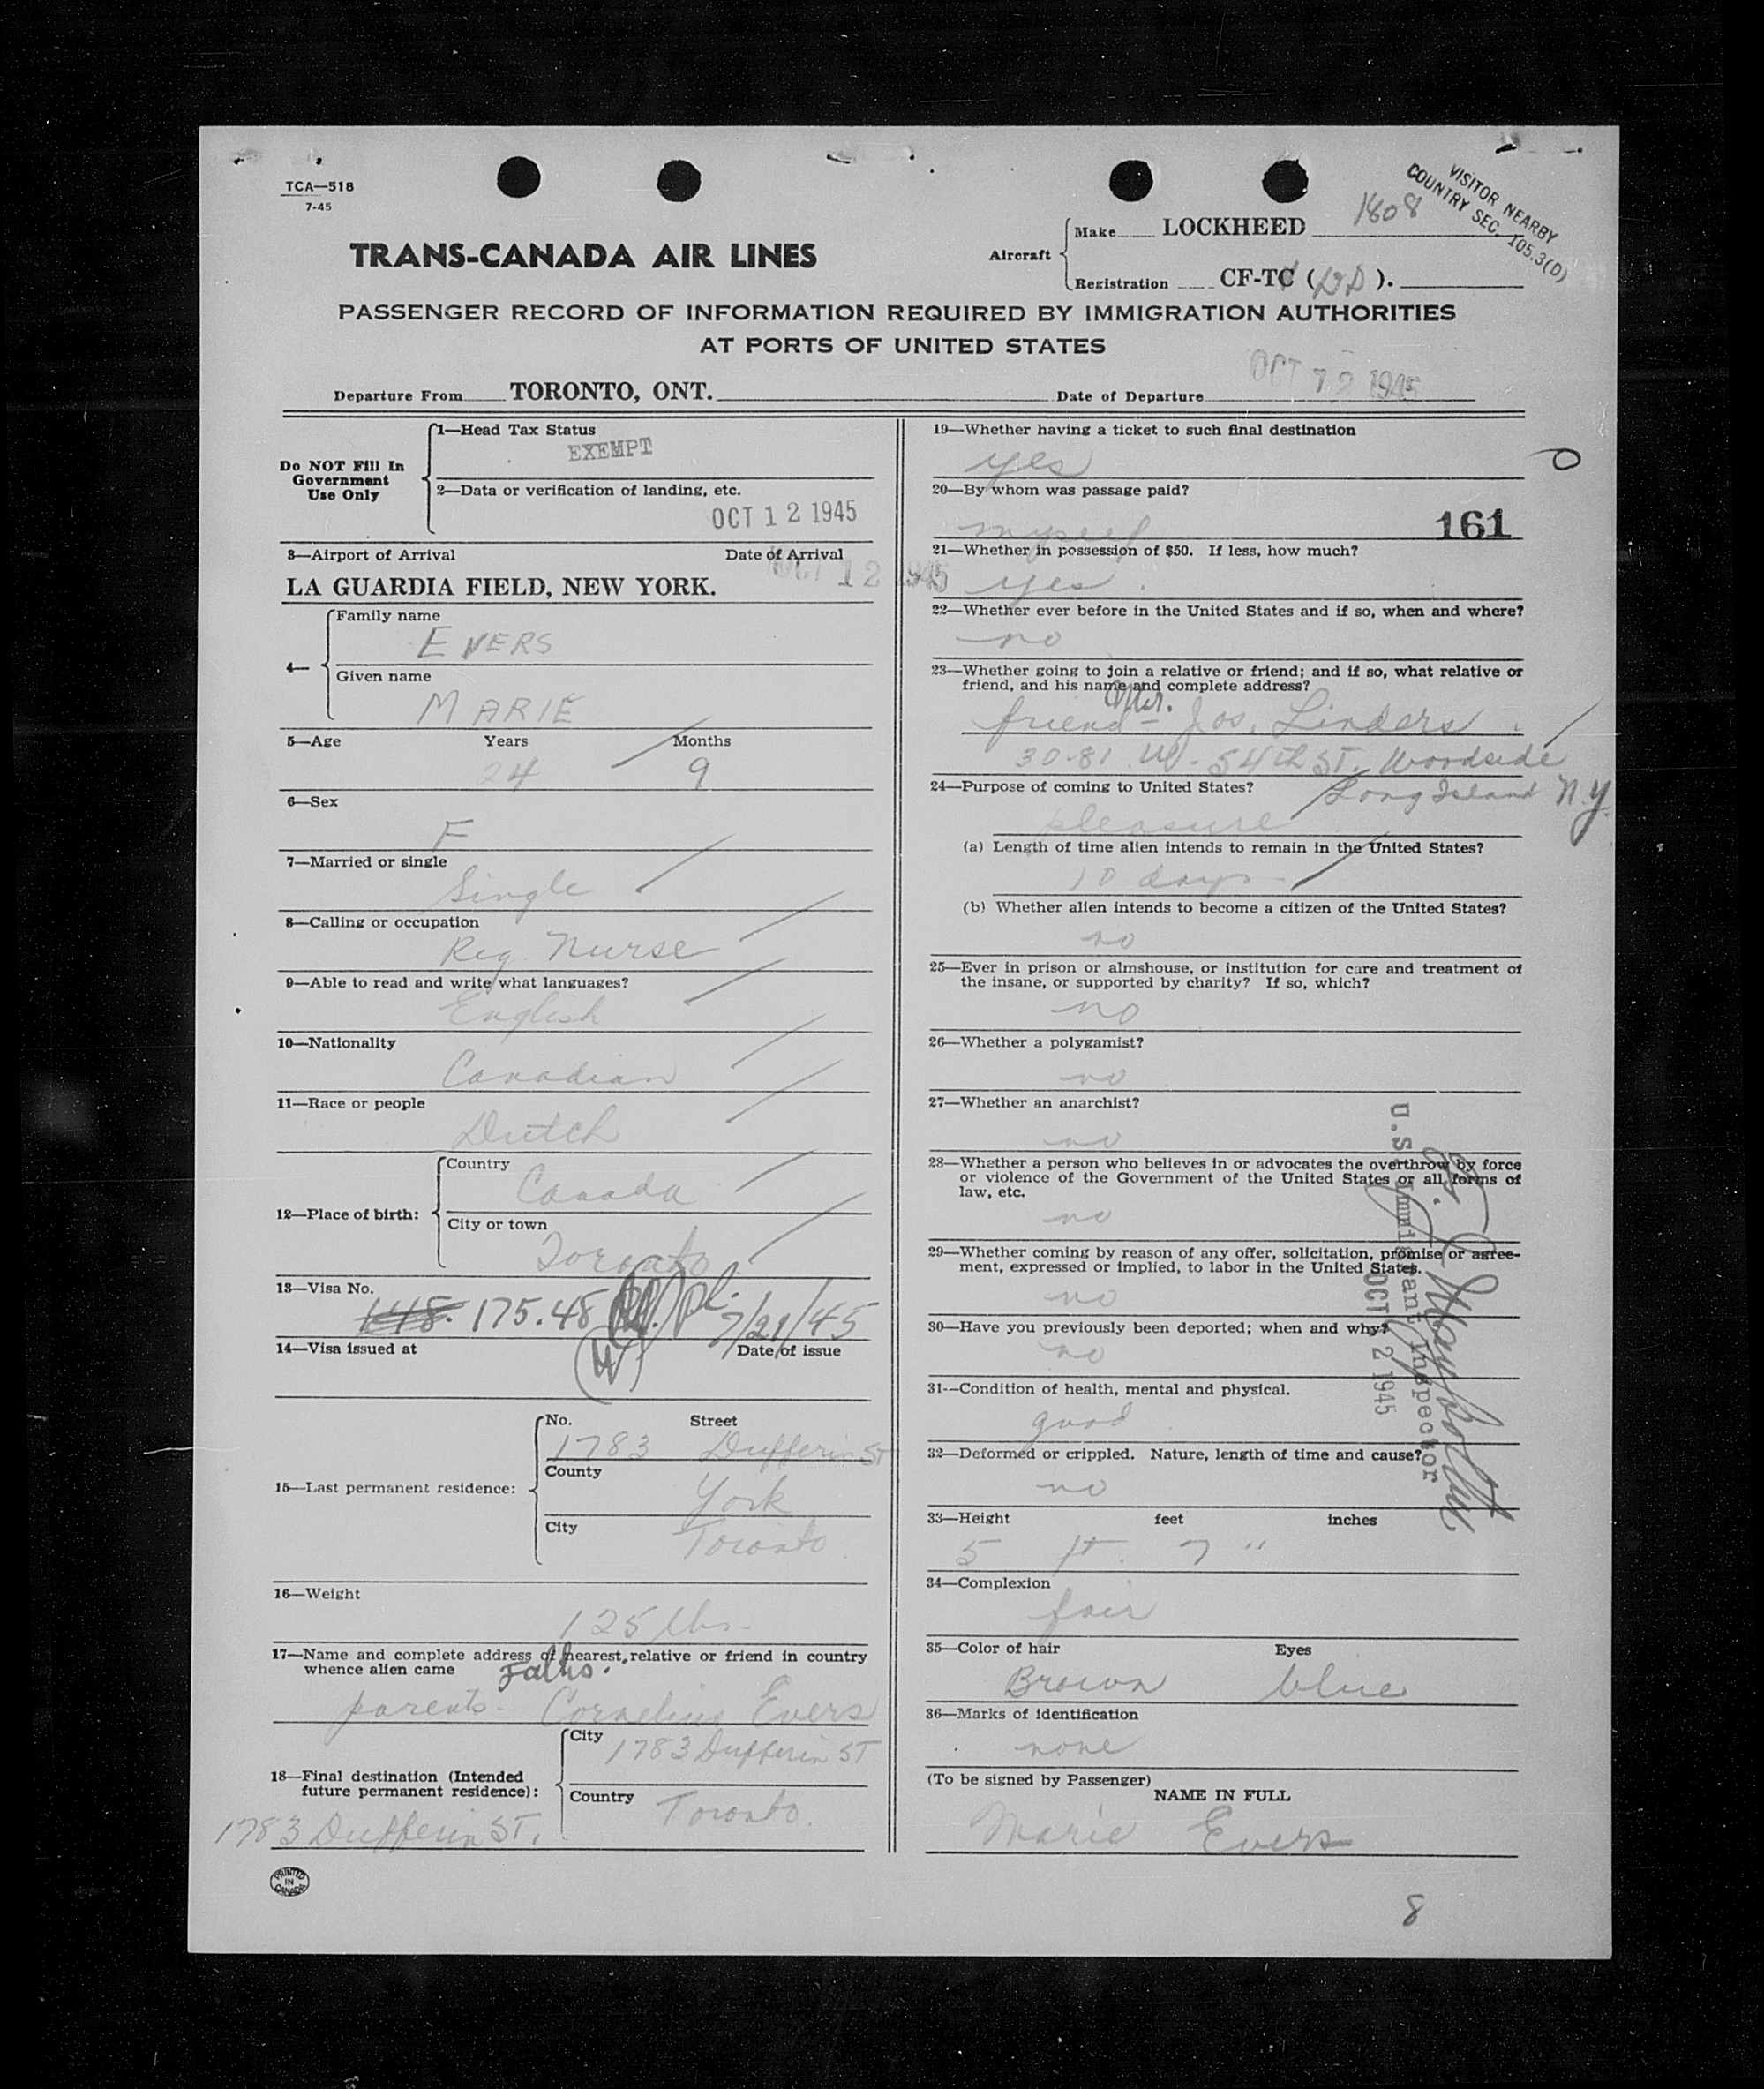 TCA—518
7-45
VISITOR NEARBY
COUNTRY SEC. 105.3(D)
TRANS-CANADA AIR LINES
Aircraft
Make LOCKHEED 1808
Registration CF-TC ( ).
PASSENGER RECORD OF INFORMATION REQUIRED BY IMMIGRATION AUTHORITIES
AT PORTS OF UNITED STATES
Departure From TORONTO, ONT. Date of Departure OCT 12 1945
Do NOT Fill In
Government
Use Only
1—Head Tax Status
EXEMPT
2—Data or verification of landing, etc.
OCT 12 1945
3—Airport of Arrival Date of Arrival
LA GUARDIA FIELD, NEW YORK. OCT 12 1945
4—
Family name
EVERS
Given name
MARIE
5—Age Years Months
24 9
6—Sex
F
7—Married or single
Single
8—Calling or occupation
Reg. Nurse
9—Able to read and write what languages?
English
10—Nationality
Canadian
11—Race or people
Dutch
12—Place of birth:
Country
Canada
City or town
Toronto
13—Visa No.
148. 175.45 pl. 7/21/45
14—Visa issued at Date of issue
15—Last permanent residence:
No. Street
1783 Dufferin ST
County
York
City
Toronto
16—Weight
125 lbs.
17—Name and complete address of nearest relative or friend in country
whence alien came
parents - Cornelius Evers
18—Final destination (Intended
future permanent residence):
City
1783 Dufferin ST
Country
Toronto.
1783 Dufferin ST.
PRINTED
IN
CANADA
19—Whether having a ticket to such final destination
yes
20—By whom was passage paid?
myself 161
21—Whether in possession of $50. If less, how much?
yes.
22—Whether ever before in the United States and if so, when and where?
no
23—Whether going to join a relative or friend; and if so, what relative or
friend, and his name and complete address?
friend - Mr. Jos. Linders
30-81 W - 54th ST. Woodside
Long Island N.Y.
24—Purpose of coming to United States?
pleasure
(a) Length of time alien intends to remain in the United States?
10 days
(b) Whether alien intends to become a citizen of the United States?
no
25—Ever in prison or almshouse, or institution for care and treatment of
the insane, or supported by charity? If so, which?
no
26—Whether a polygamist?
no
27—Whether an anarchist?
no
28—Whether a person who believes in or advocates the overthrow by force
or violence of the Government of the United States or all forms of
law, etc.
no
29—Whether coming by reason of any offer, solicitation, promise or agree-
ment, expressed or implied, to labor in the United States.
no
30—Have you previously been deported; when and why?
no
31—Condition of health, mental and physical.
good
32—Deformed or crippled. Nature, length of time and cause?
no
33—Height feet inches
5 ft. 7 "
34—Complexion
fair
35—Color of hair Eyes
Brown blue
36—Marks of identification
none
(To be signed by Passenger)
NAME IN FULL
Marie Evers
U.S. Immigrant Inspector
OCT 12 1945
8